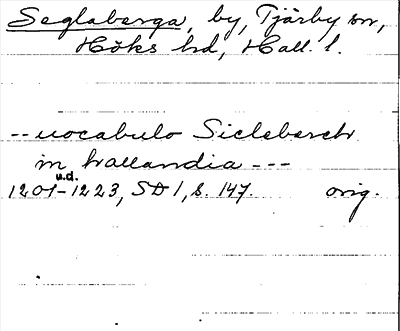 Seglaberga, by, Tjärby sn,
Höks hd, Hall. l.
-- uocabulo Sicleberch
in hallandia ---
u.d.
1201-1223, SD 1, s. 147. orig.